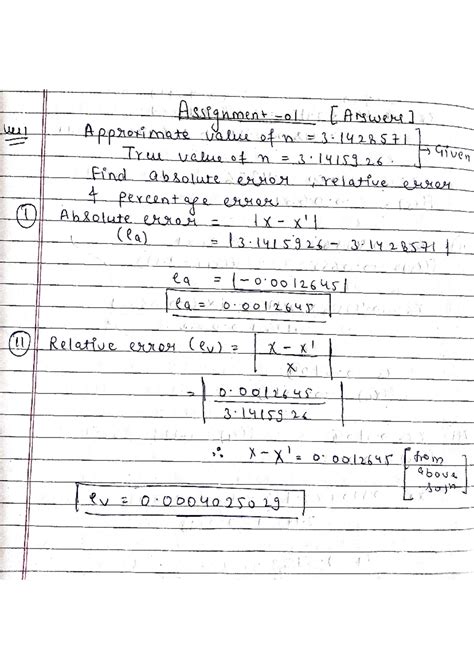 Assignment-01 [Answers]
Approximate value of n = 3.1428571
True value of n = 3.1415926 → Given
Find absolute error, relative error
& percentage error
I Absolute error = |x - x'|
(ea) = |3.1415926 - 3.1428571|
ea = |-0.0012645|
ea = 0.0012645
II Relative error (ev) = |x - x' / x|
= |0.0012645 / 3.1415926|
∴ x - x' = 0.0012645 [from above soln]
ev = 0.0004025029